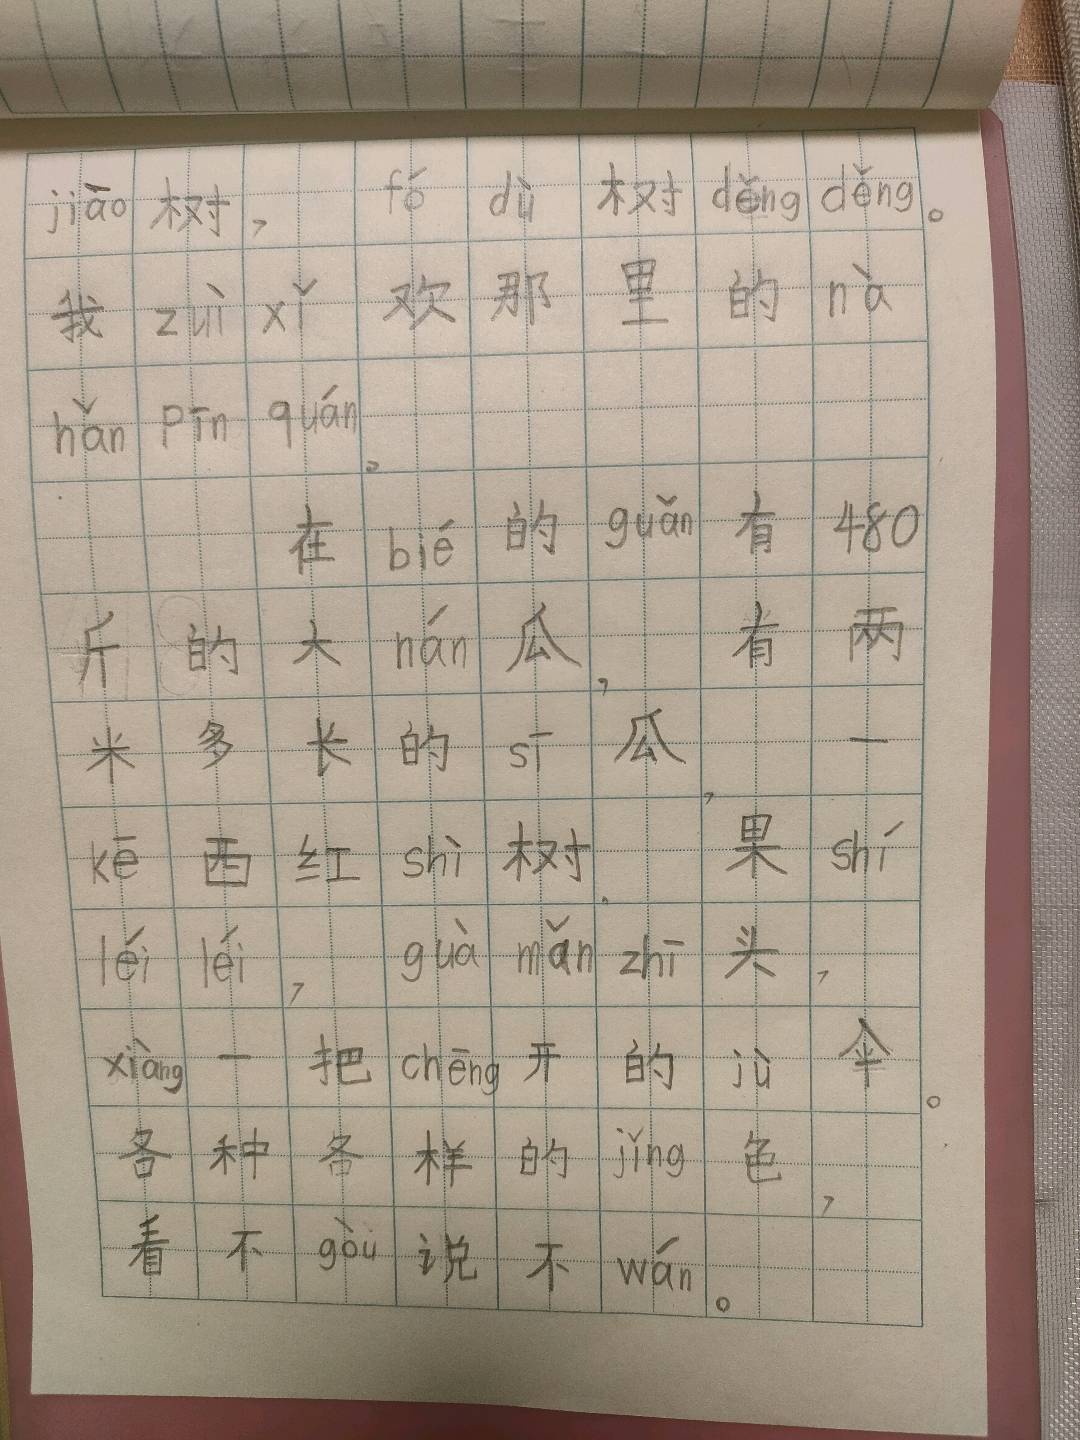 jiāo树，fó dù 树 děng děng。
我 zuì xǐ 欢那里的 nà
hǎn pīn quán。
在 bié 的 guǎn 有 480
斤的大 nán 瓜，有两
米多长的 sī 瓜，一
kē 西红 shì 树，果 shí
léi léi，guà mǎn zhī 头，
xiàng 一把 chēng 开的 jù 伞。
各种各样的 jǐng 色，
看不 gòu 说不 wán。